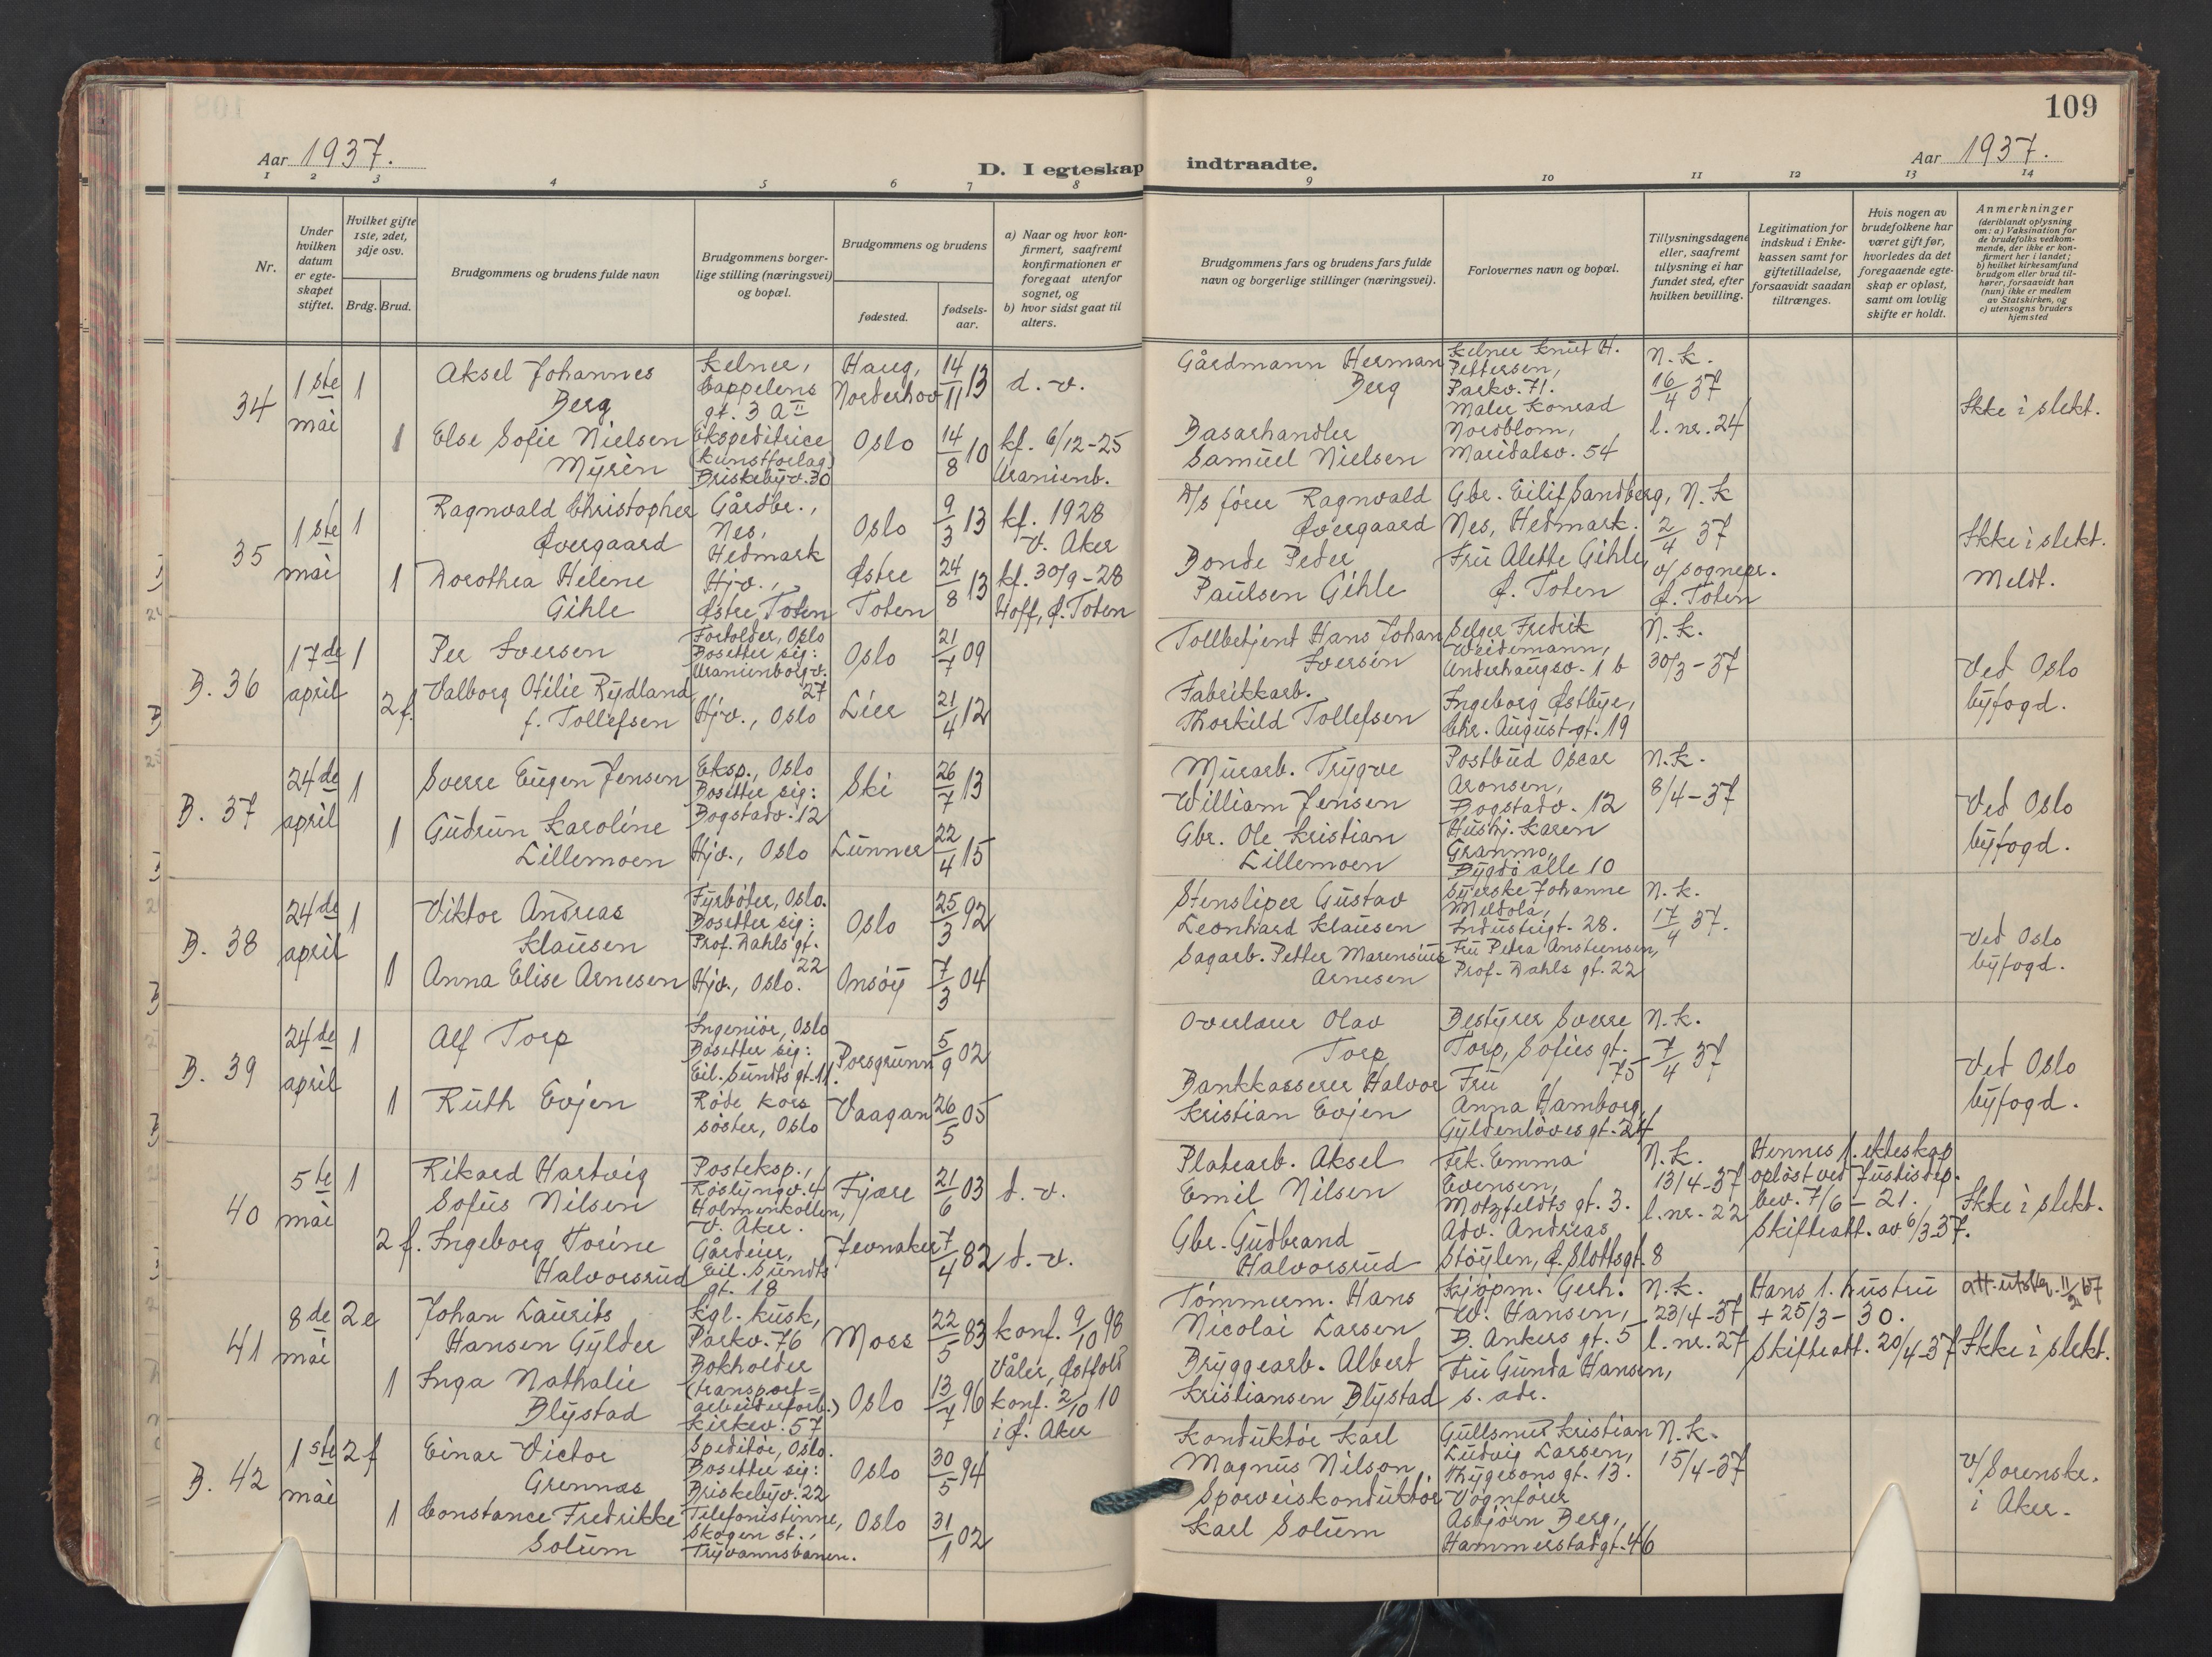 109
Aar 1937.
D. I egteskap indtraadte.
Aar 1937.
1 2 3 4 5 6 7 8 9 10 11 12 13 14
Nr.
Under hvilken datum er egteskapet stiftet.
Hvilket gifte 1ste, 2det, 3dje osv.
Brdg. Brud.
Brudgommens og brudens fulde navn
Brudgommens borgerlige stilling (næringsvei) og bopæl.
Brudgommens og brudens
fødested.
fødselsaar.
a) Naar og hvor konfirmert, saafremt konfirmationen er foregaat utenfor sognet, og
b) hvor sidst gaat til alters.
Brudgommens fars og brudens fars fulde navn og borgerlige stillinger (næringsvei).
Forlovernes navn og bopæl.
Tillysningsdagene eller, saafremt tillysning ei har fundet sted, efter hvilken bevilling.
Legitimation for indskud i Enkekassen samt for giftetilladelse, forsaavidt saadan tiltrænges.
Hvis nogen av brudefolkene har været gift før, hvorledes da det foregaaende egteskap er opløst, samt om lovlig skifte er holdt.
Anmerkninger
(deriblandt oplysning om: a) Vaksination for de brudefolks vedkommende, der ikke er konfirmert her i landet;
b) hvilket kirkesamfund brudgom eller brud tilhører, forsaavidt han (hun) ikke er medlem av Statskirken, og
c) utensogns bruders hjemsted
34
1ste mai
1
Aksel Johannes
Berg
Kelner,
Cappelens
gt. 3 A II
Haug,
Norderhov
14/11 13
d. v.
Gårdmann Herman
Berg
Kelner Knut H.
Pettersen,
Parkv. 71.
N. k.
16/4 37
l. nr. 24
Ikke i slekt.
1
Else Sofie Nielsen
Myrén
Ekspeditrice
(kunstforlag)
Briskebyv. 30
Oslo
14/8 10
kf. 6/12-25
Uranienb.
Basarhandler
Samuel Nielsen
Maler Konrad
Nordblom,
Maridalsv. 54
35
1ste mai
1
Ragnvald Christopher
Øvergaard
Gårdbr.,
Nes,
Hedmark
Oslo
9/3 13
kf. 1928
V. Aker
D/s fører Ragnvald
Øvergaard
Gbr. Eilif Sandberg,
Nes, Hedmark.
N. k
2/4 37
v/ sognepr.
Ø. Toten
Ikke i slekt.
Meldt.
1
Dorothea Helene
Gihle
Hjv.,
Østre Toten
Østre
Toten
24/8 13
kf. 30/9-28
Hoff, Ø. Toten
Bonde Peder
Paulsen Gihle
Fru Alette Gihle,
Ø. Toten
B. 36
17de april
1
Per Iversen
Forholder, Oslo
Bosetter sig:
Uranienborgv.
27
Oslo
21/7 09
Tollbetjent Hans Johan
Iversen
Selger Fredrik
Weidemann,
Underhaugsv. 1 b
N. k.
30/3-37
Ved Oslo
byfogd.
2 f.
Valborg Otilie Rydland
f. Tollefsen
Hjv., Oslo
Lier
21/4 12
Fabrikkarb.
Thorkild Tollefsen
Ingeborg Østbye,
Chr. August-gt. 19
B. 37
24de april
1
Sverre Eugen Jensen
Eksp., Oslo
Bosetter sig:
Bogstadv. 12
Ski
26/7 13
Murarb. Trygve
William Jensen
Postbud Oscar
Aronsen,
Bogstadv. 12
N. k.
8/4-37
Ved Oslo
byfogd.
1
Gudrun Karoline
Lillemoen
Hjv., Oslo
Lunner
22/4 15
Gbr. Ole Kristian
Lillemoen
Hushj. Karen
Granmo,
Bygdø alle 10
B. 38
24de april
1
Viktor Andreas
Klausen
Fyrbøter, Oslo.
Bosetter sig:
Prof. Dahls gt.
22
Oslo
25/3 92
Stensliper Gustav
Leonhard Klausen
Syerske Johanne
Meldola,
Industrigt. 28.
N. k.
17/4 37.
Ved Oslo
byfogd.
1
Anna Elise Arnesen
Hjv., Oslo.
Onsøy
7/3 04
Sagarb. Petter Marensius
Arnesen
Fru Petra Anstensen,
Prof. Dahls gt. 22
B. 39
24de april
1
Alf Torp
Ingeniør, Oslo
Bosetter sig:
Eil. Sundts gt. 11.
Porsgrunn
5/9 02
Overlærer Olav
Torp
Bestyrer Sverre
Torp, Sofies gt.
75
N. k.
7/4 37
Ved Oslo
byfogd.
1
Ruth Evjen
Røde Kors
søster, Oslo
Vaagan
26/5 05
Bankkasserer Halvor
Kristian Evjen
Fru
Anna Hamborg,
Gyldenløves gt. 24
40
5te mai
1
Rikard Hartvig
Sofus Nilsen
Posteksp.,
Røslyngv. 4
Holmenkollen,
V. Aker.
Fjære
21/6 03
d. v.
Platearb. Aksel
Emil Nilsen
Frk. Emma
Evensen,
Motzfeldts gt. 3.
N. k.
13/4-37
l. nr. 22
Hennes 1. ekteskap
opløst ved Justisdep.
bev. 7/6-21.
Skifteatt. av 6/3-37.
Ikke i slekt.
2 f.
Ingeborg Torine
Halvorsrud
Gårdeier,
Eil. Sundts
gt. 18
Jevnaker
7/4 82
d. v.
Gbr. Gudbrand
Halvorsrud
Adv. Andreas
Støylen, Ø. Slottsgt. 8
41
8de mai
2 e
Johan Laurits
Hansen Gylder
Kgl. kusk,
Parkv. 76
Moss
22/5 83
konf. 9/10 98
Våler, Østfold
Tømmerm. Hans
Nicolai Larsen
Kjøpm. Gerh.
W. Hansen,
B. Ankers gt. 5
N. k.
23/4-37
l. nr. 27
Hans 1. hustru
+ 25/3-30.
Skifteatt. 20/4-37
att. utstr. 11/2 57
Ikke i slekt.
1
Inga Nathalie
Blystad
Bokholder
(transport=
arbeiderforb.)
Kirkev. 57
Oslo
13/7 96
konf. 2/10 10
i Ø. Aker
Bryggearb. Albert
Kristiansen Blystad
Fru Gunda Hansen,
s. adr.
B. 42
1ste mai
2 f
Einar Victor
Grennæs
Speditør, Oslo.
Bosetter sig:
Briskebyv. 22
Oslo
30/5 94
Konduktør Karl
Magnus Nilson
Gullsmed Kristian
Ludvig Larsen,
Thygesons gt. 13.
N. k.
15/4-37
v/ Sorenskr.
i Aker.
1
Constance Fredrikke
Solum
Telefonistinne,
Skogen st.,
Tryvannsbanen.
Oslo
31/1 02
Sporveiskonduktør
Karl Solum
Vognfører
Asbjørn Berg,
Hammerstadgt. 46